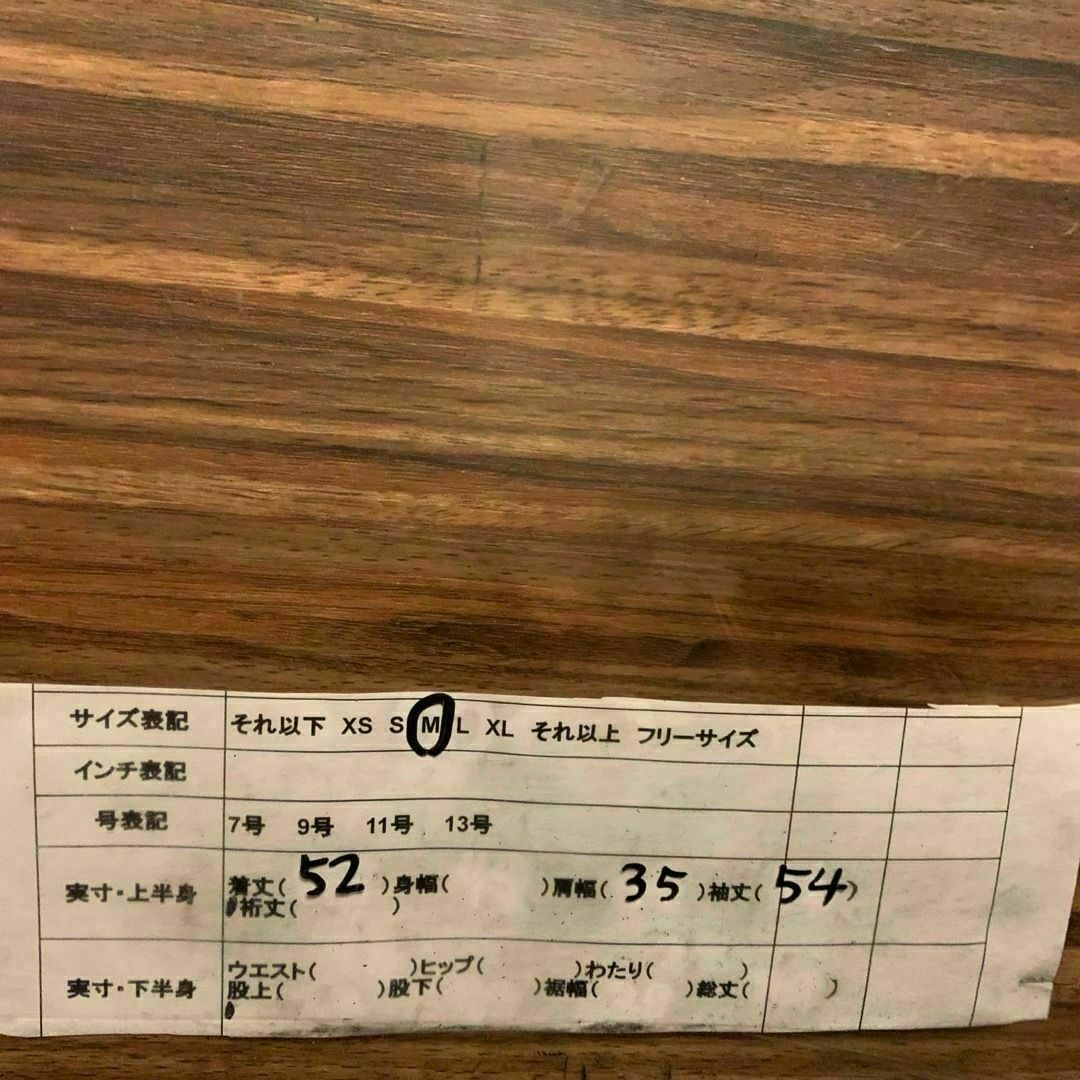 サイズ表記 それ以下 XS S M L XL それ以上 フリーサイズ
インチ表記
号表記 7号 9号 11号 13号
実寸・上半身 着丈( 52 )身幅( )肩幅( 35 )袖丈( 54 )
裄丈( )
実寸・下半身 ウエスト( )ヒップ( )わたり( )
股上( )股下( )裾幅( )総丈( )